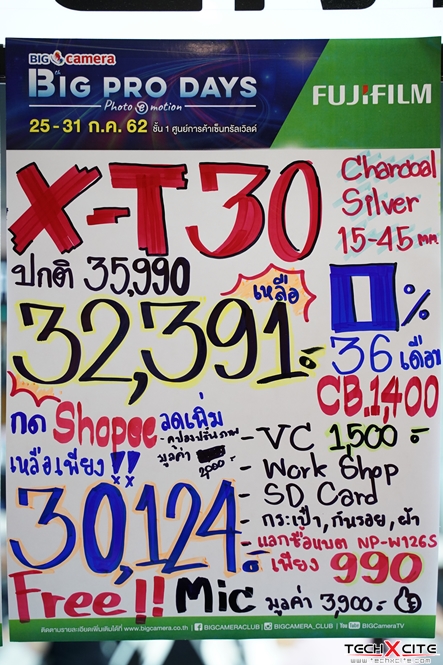 BIG camera
BIG PRO DAYS
Photo e motion
25 - 31 ก.ค. 62 ชั้น 1 ศูนย์การค้าเซ็นทรัลเวิลด์
FUJIFILM
X-T30
Charcoal
Silver
15-45 mm
ปกติ 35,990
เหลือ
32,391.-
0%
36 เดือน
CB.1,400
กด Shopee ลดเพิ่ม
มูลค่า
2000.-
เหลือเพียง !!
30,124.-
- VC 1,500.-
- Work Shop
- SD Card
- กระเป๋า, กันรอย, ผ้า
- แลกซื้อแบต NP-W126S
เพียง 990
Free!! Mic มูลค่า 3,900.-
ติดตามรายละเอียดเพิ่มเติมได้ที่ www.bigcamera.co.th | BIGCAMERACLUB | BIGCAMERA_CLUB | You Tube BIGCAMERATV
TECHXCITE
www.techxcite.com